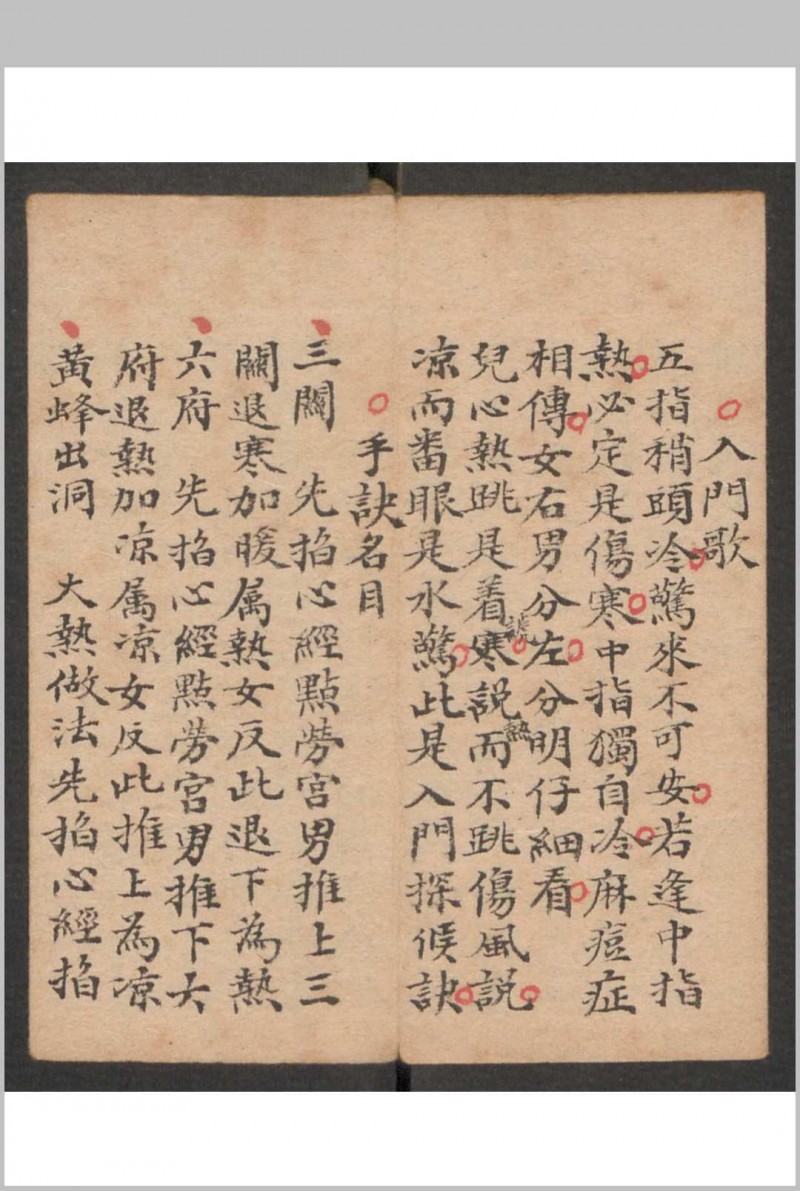 入門歌
五指稍頭冷驚來不可安若逢中指
熱必定是傷寒中指獨自冷麻痘症
相傳女右男分左分明仔細看
兒心熱跳是着寒說而不跳傷風說
熱
凉而番眼是水驚此是入門探候訣
手訣名目
三關 先掐心經點勞宮男推上三
關退寒加暖属熱女反此退下為熱
六府 先掐心經點勞宮男推下六
府退熱加凉属凉女反此推上為凉
黃蜂出洞 大熱做法先掐心經掐